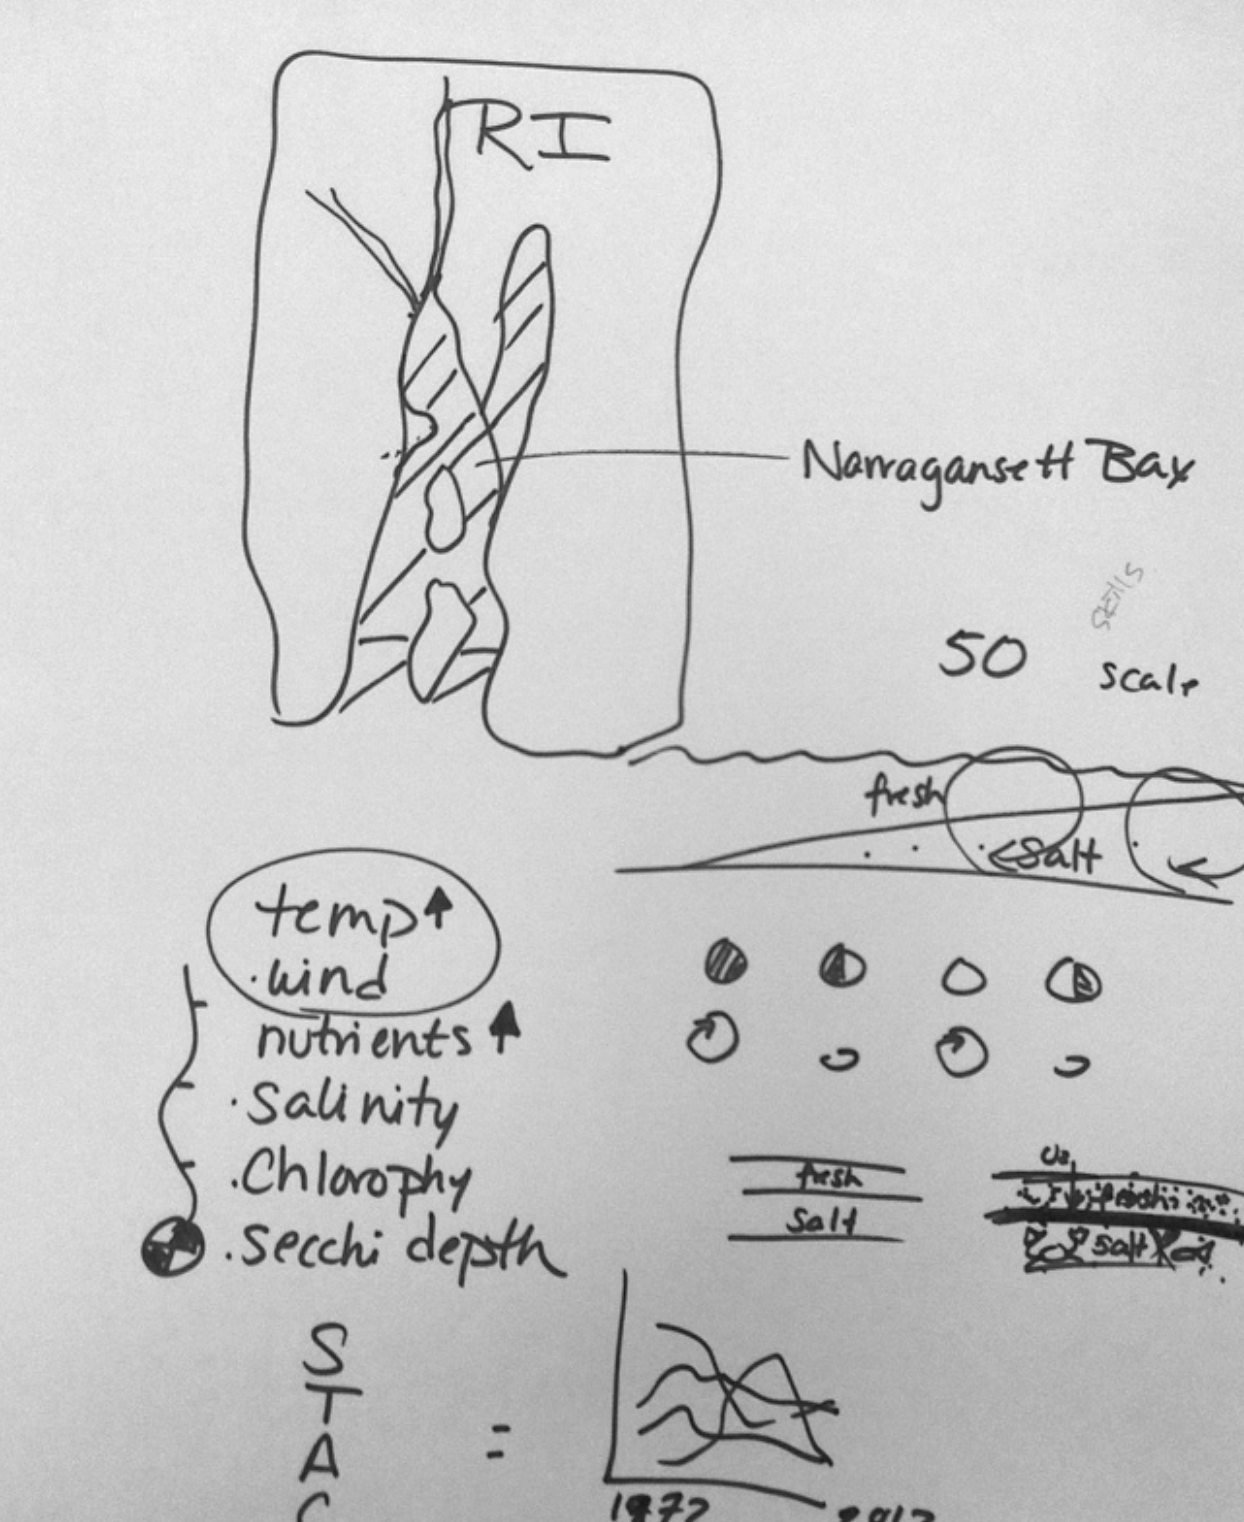 RI
Narragansett Bay
50
scale
fresh
<salt
temp↑
·wind
nutrients↑
·Salinity
·Chlorophy
·Secchi depth
fresh
Salt
salt
S
T
A
C
=
1972